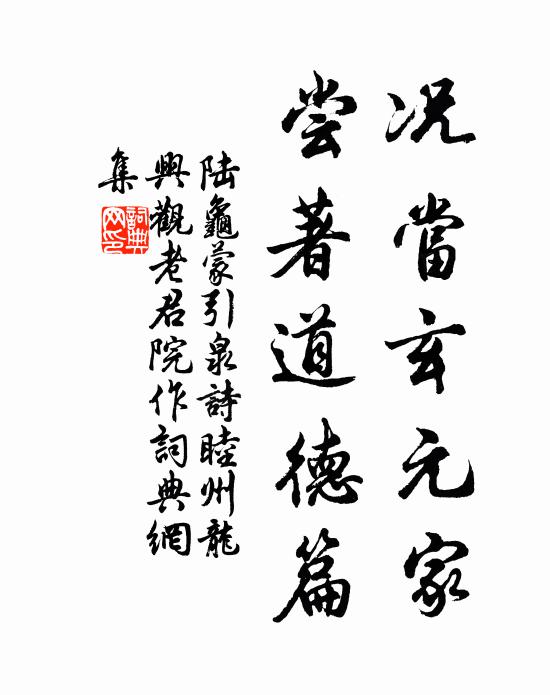 况當玄元家
尝著道德篇
陆龜蒙引泉詩睦州龍
興觀老君院作詞典網
集
詞典网印